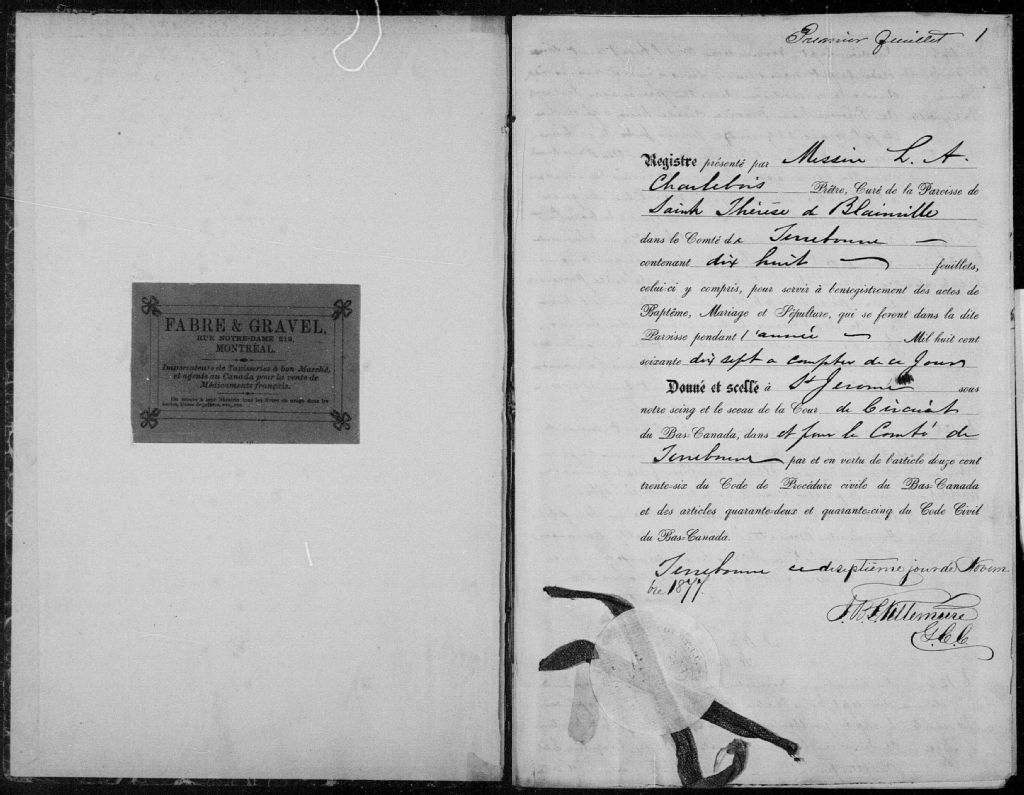 FABRE & GRAVEL,
RUE NOTRE-DAME 219,
MONTRÉAL.
Importateurs de Tapisseries à bon Marché,
et agents au Canada pour la vente de
Médicaments français.
On trouve à leur librairie tous les livres en usage dans les
Premier feuillet 1
Registre présenté par Messire L. A.
Charlebois Prêtre, Curé de la Paroisse de
Sainte Thérèse d Blainville
dans le Comté de Terrebonne —
contenant dix huit — feuillets,
celui-ci y compris, pour servir à l'enregistrement des actes de
Baptême, Mariage et Sépulture, qui se feront dans la dite
Paroisse pendant l'année — Mil huit cent
soixante dix sept a compter de ce jour
Donné et scellé à St Jerome sous
notre seing et le sceau de la Cour de Circuit
du Bas-Canada, dans et pour le Comté de
Terrebonne — par et en vertu de l'article douze cent
trente-six du Code de Procédure civile du Bas-Canada
et des articles quarante-deux et quarante-cinq du Code Civil
du Bas-Canada.
Terrebonne ce dixseptième jour de Novem
bre 1877.
G.C.C